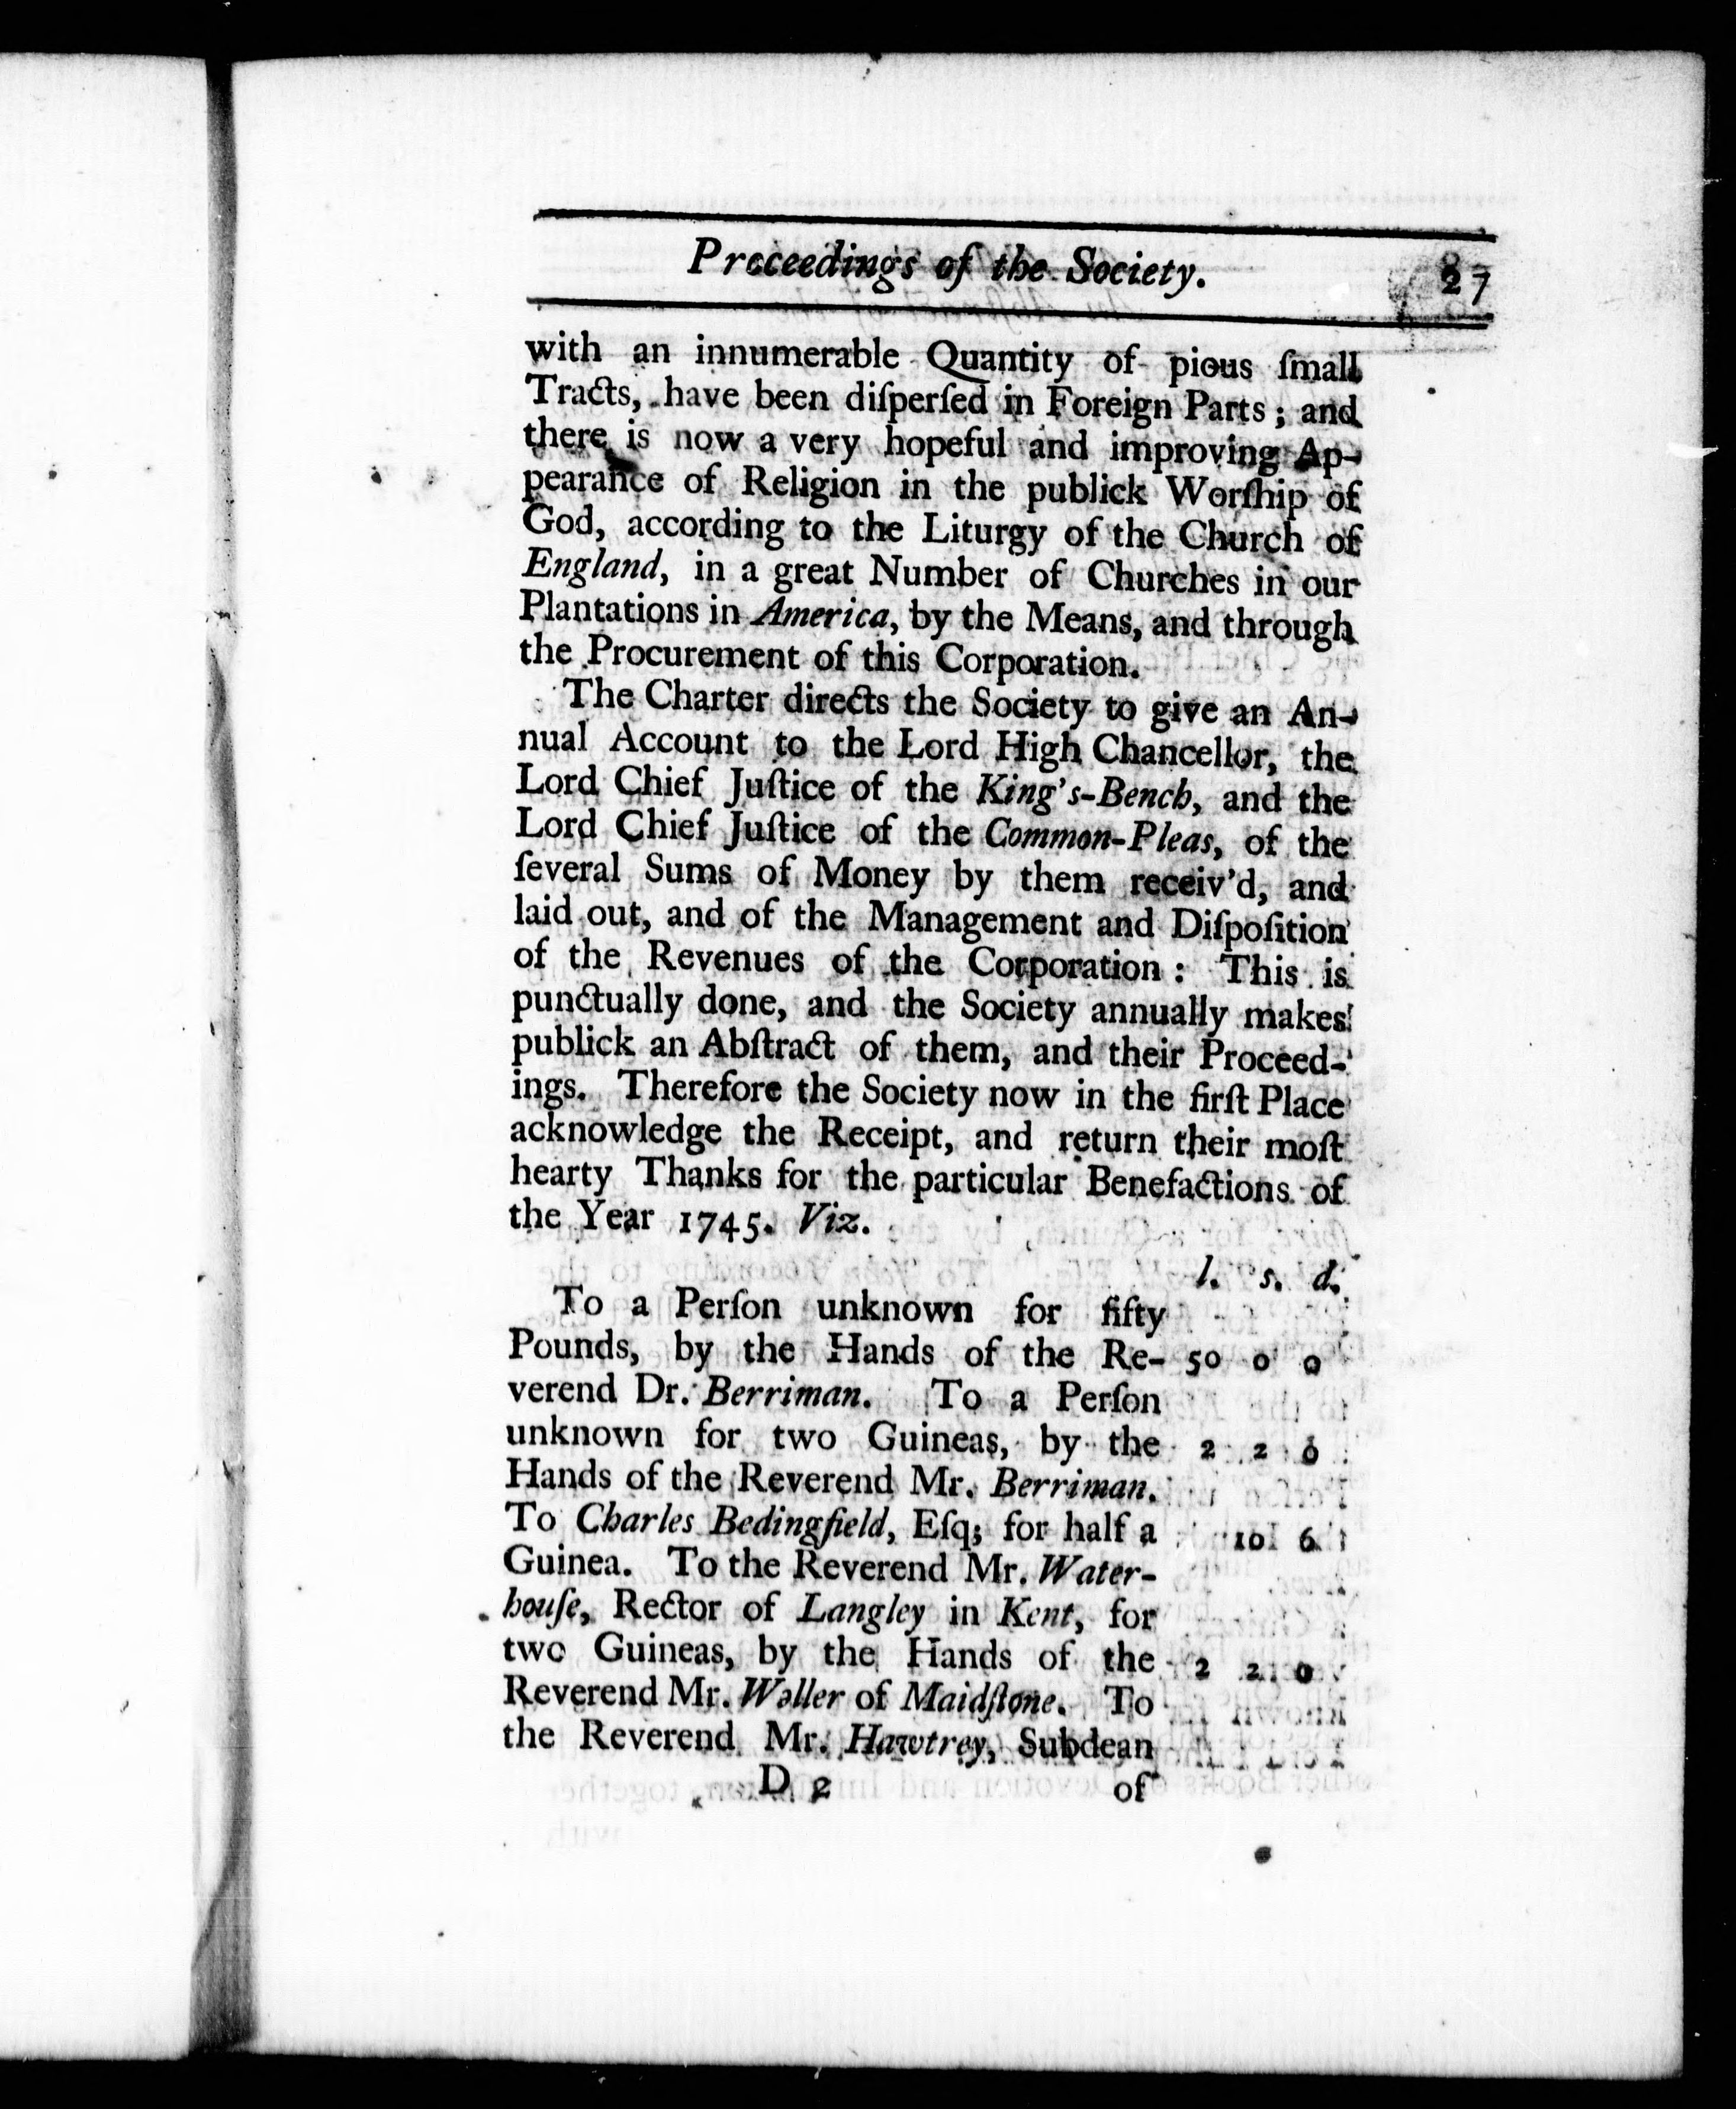 Proceedings of the Society. 27
with an innumerable Quantity of pious ſmall
Tracts, have been diſperſed in Foreign Parts; and
there is now a very hopeful and improving Ap-
pearance of Religion in the publick Worſhip of
God, according to the Liturgy of the Church of
England, in a great Number of Churches in our
Plantations in America, by the Means, and through
the Procurement of this Corporation.
The Charter directs the Society to give an An-
nual Account to the Lord High Chancellor, the
Lord Chief Juſtice of the King's-Bench, and the
Lord Chief Juſtice of the Common-Pleas, of the
ſeveral Sums of Money by them receiv'd, and
laid out, and of the Management and Diſpoſition
of the Revenues of the Corporation: This is
punctually done, and the Society annually makes
publick an Abſtract of them, and their Proceed-
ings. Therefore the Society now in the firſt Place
acknowledge the Receipt, and return their moſt
hearty Thanks for the particular Benefactions of
the Year 1745. Viz.
l. s. d.
To a Perſon unknown for fifty
Pounds, by the Hands of the Re- 50 0 0
verend Dr. Berriman. To a Perſon
unknown for two Guineas, by the 2 2 0
Hands of the Reverend Mr. Berriman.
To Charles Bedingfield, Eſq; for half a 10 6
Guinea. To the Reverend Mr. Water-
houſe, Rector of Langley in Kent, for
two Guineas, by the Hands of the 2 2 0
Reverend Mr. Weller of Maidſtone. To
the Reverend Mr. Hawtrey, Subdean
D 2 of